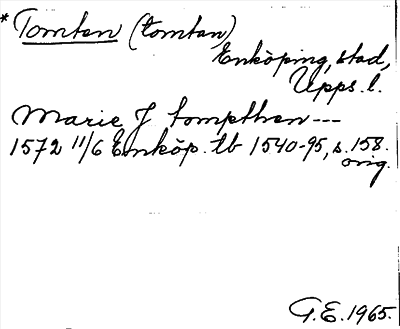 * Tomten (tomtan)
Enköping, stad,
Upps. l.
Marie J tompthen ---
1572 11/6 Enköp. tb 1540-95, s. 158.
orig.
G.E. 1965.